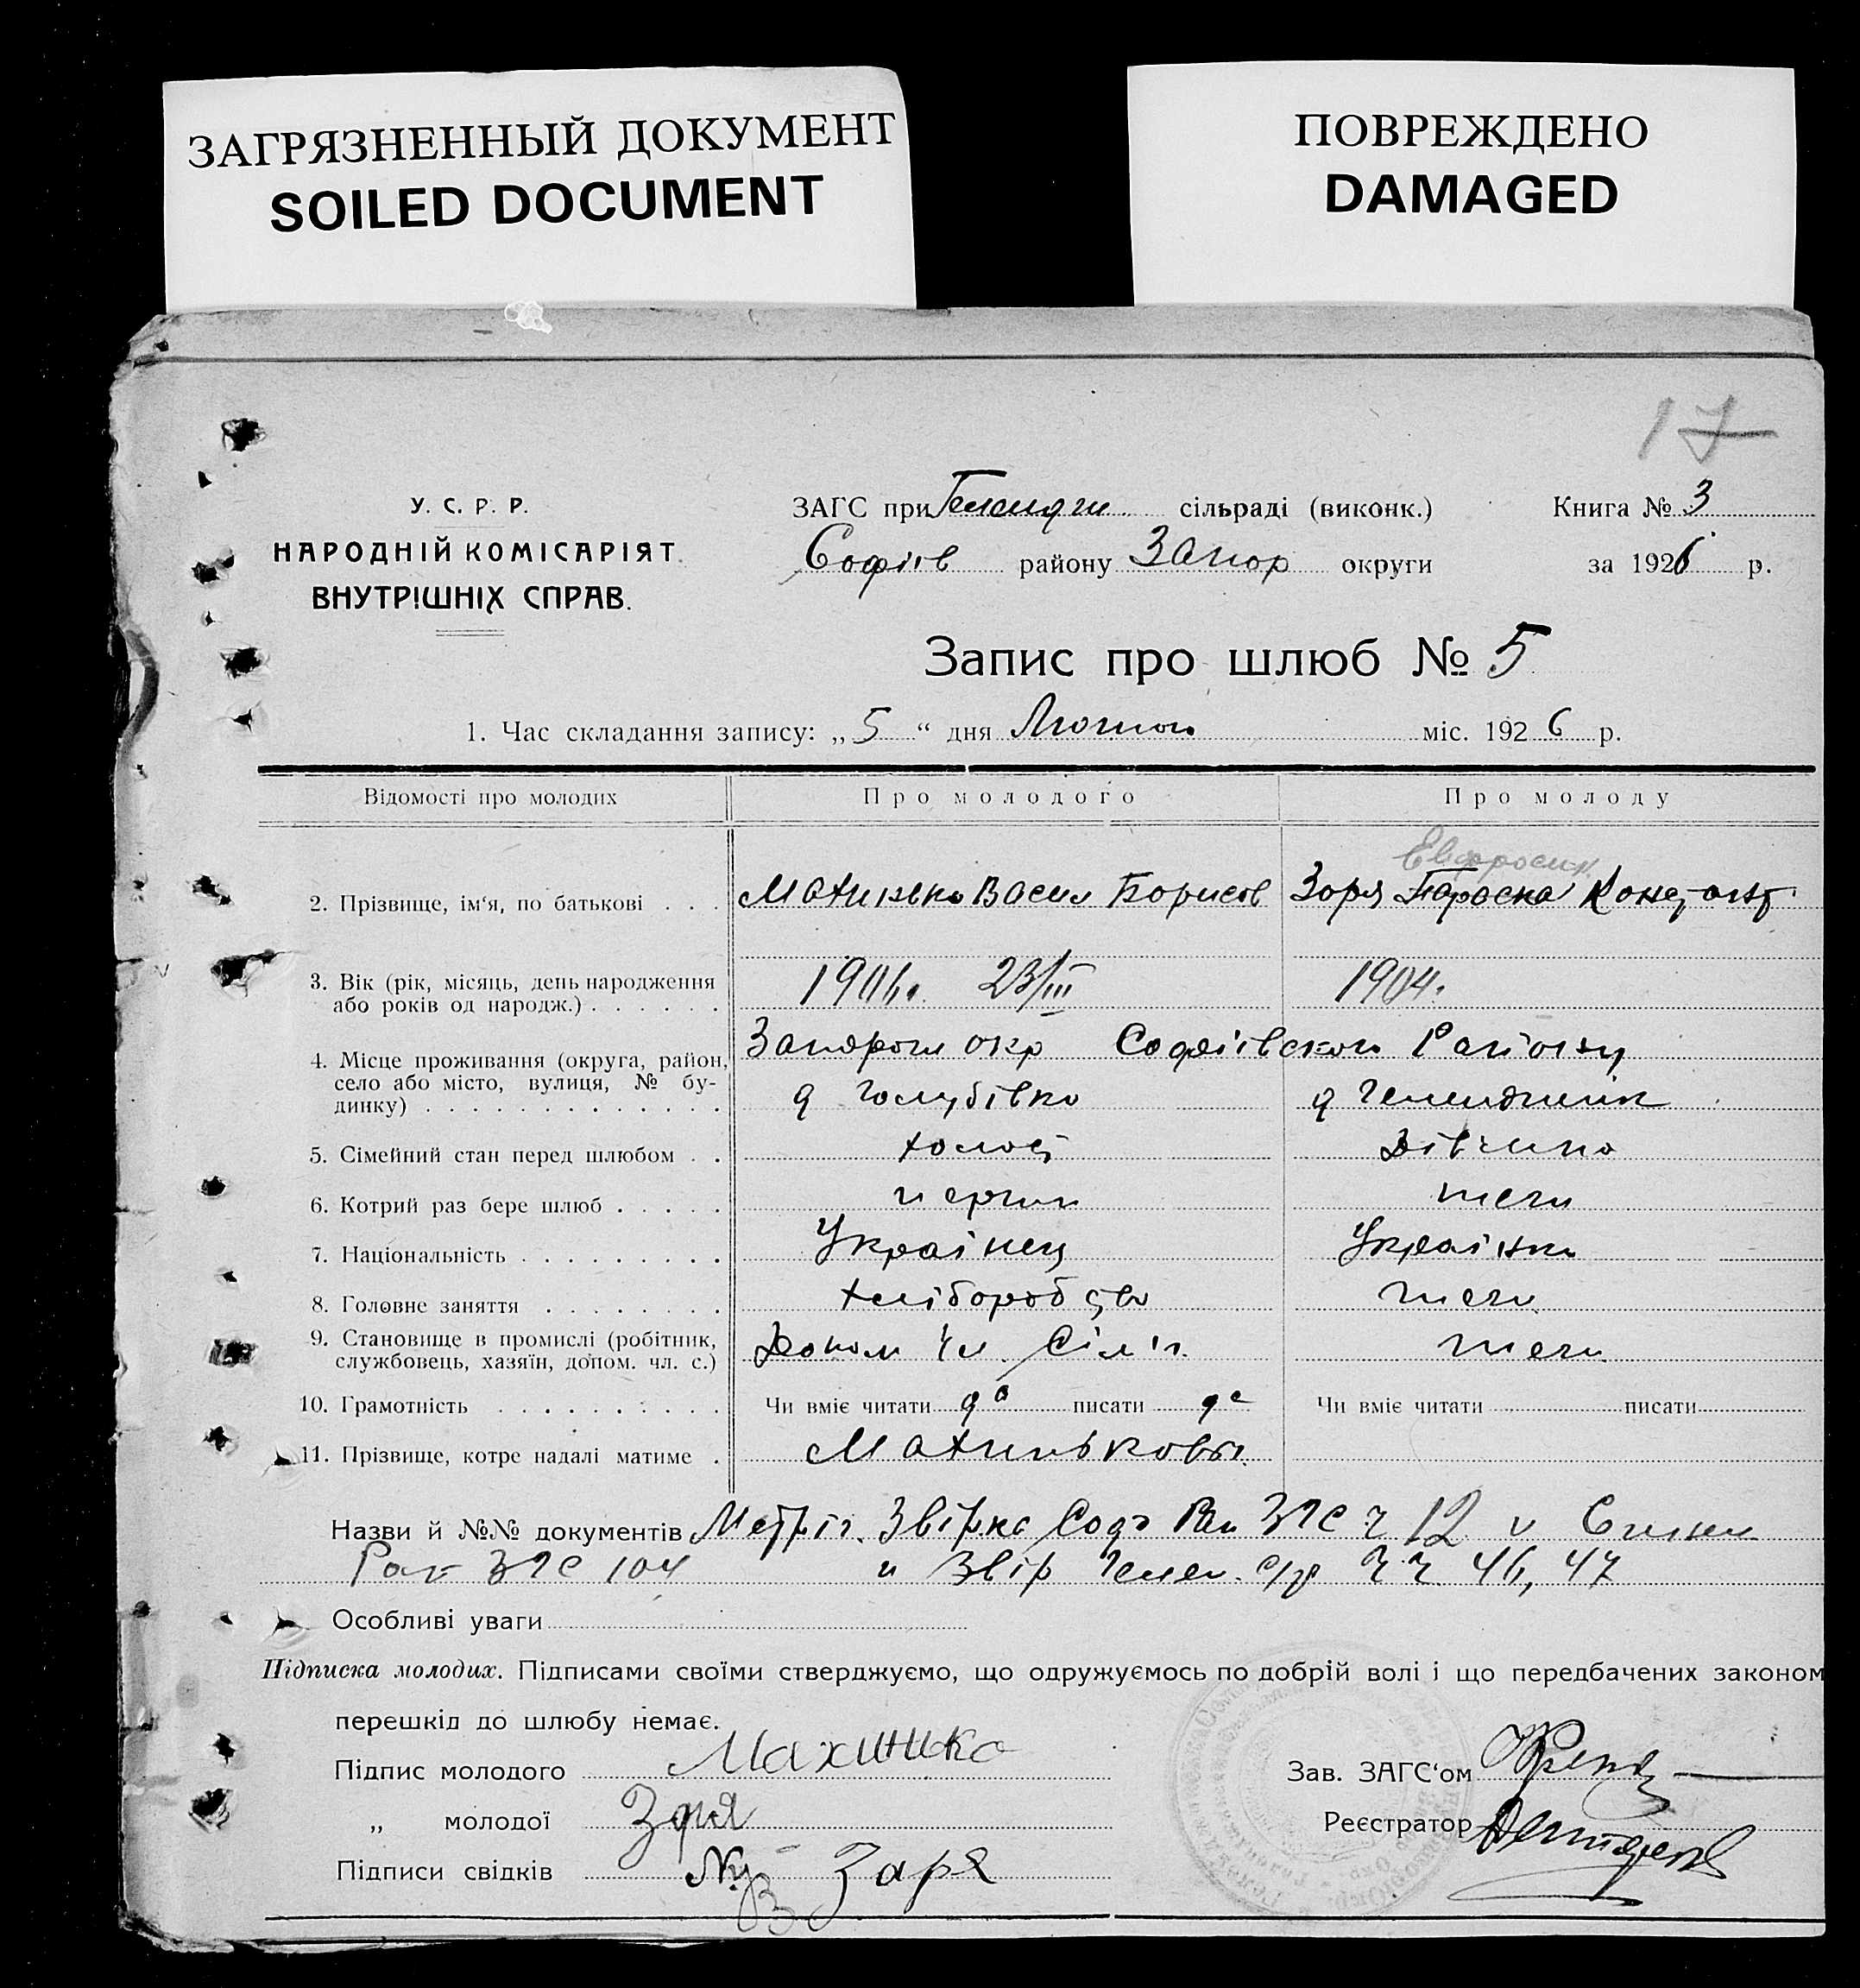 ЗАГРЯЗНЕННЫЙ ДОКУМЕНТ
SOILED DOCUMENT
ПОВРЕЖДЕНО
DAMAGED
17
У. С. Р. Р.
НАРОДНІЙ КОМІСАРІЯТ
ВНУТРІШНІХ СПРАВ.
ЗАГС при сільраді (виконк.)
Софіїв району Запор округи
Книга № 3
за 1926 р.
Запис про шлюб № 5
1. Час складання запису: „5“ дня Лютого міс. 1926 р.
Відомості про молодих Про молодого Про молоду
Евфросин.
2. Прізвище, ім'я, по батькові . . . Махинько Васил Борисов Зоря Параска Кондрат
3. Вік (рік, місяць, день народження
або років од народж.) . . . . . . 1906 р. 23/III 1904.
4. Місце проживання (округа, район, Запорож окр Софіївского Району
село або місто, вулиця, № бу-
динку) . . . . . . . . . . . . . д Голубівка д
5. Сімейний стан перед шлюбом . . холост Дівчина
6. Котрий раз бере шлюб . . . . . перший теж
7. Національність . . . . . . . . . Українец Українка
8. Головне заняття . . . . . . . . хліборобство теж
9. Становище в промислі (робітник,
службовець, хазяїн, допом. чл. с.) Допом чл Сім'ї. теж
10. Грамотність . . . . . . . . . . Чи вміє читати да писати да Чи вміє читати писати
11. Прізвище, котре надалі матиме . Махинькови
Назви й №№ документів Метрич. Софі Рай ЗАГС ч 12 и
Рай ЗАГС 104 и Гелен. с/р ч ч 46, 47
Особливі уваги
Підписка молодих. Підписами своїми стверджуємо, що одружуємось по добрій волі і що передбачених законом
перешкід до шлюбу немає.
Підпис молодого Махинко
„ молодої Зоря
Підписи свідків Заря
Зав. ЗАГС'ом
Реєстратор